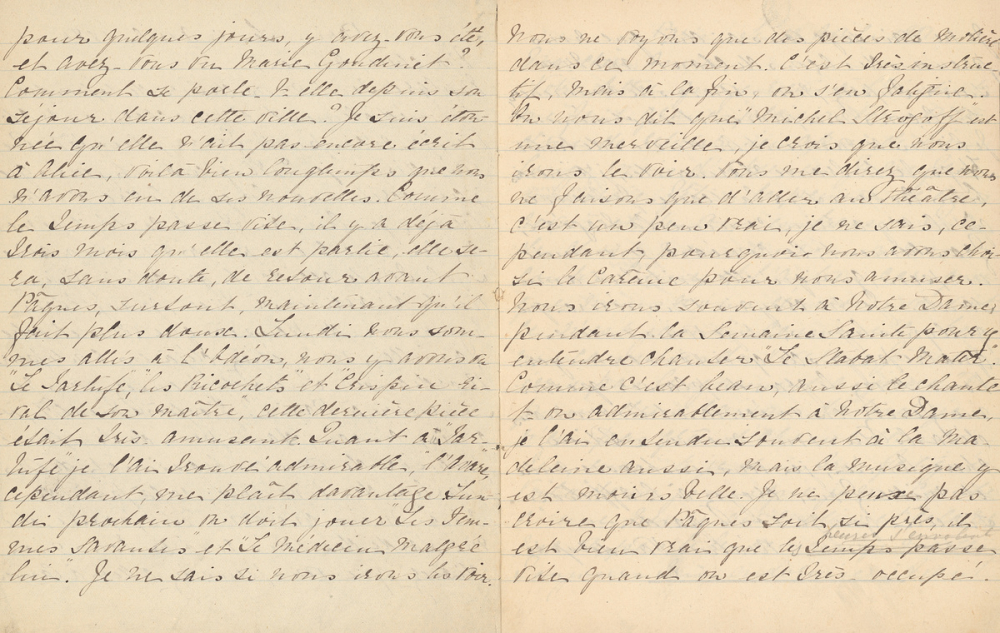 pour quelques jours, y avez-vous été,
et avez-vous vu Marie Goudinet?
Comment se porte-t-elle depuis son
séjour dans cette ville? Je suis éton-
née qu'elle n'ait pas encore écrit
à Alice, voilà bien longtemps que nous
n'avons eu de ses nouvelles. Comme
le temps passe vite, il y a déjà
trois mois qu'elle est partie, elle se-
ra, sans doute, de retour avant
Pâques, surtout maintenant qu'il
fait plus doux. Lundi nous som-
mes allés à l'Odéon, nous y avons vu
"Le Tartufe," "les Ricochets" et "Crispin ri-
val de son maître", cette dernière pièce
était très amusante. Quant à "Tar-
tufe" je l'ai trouvé admirable, "l'Avare",
cependant, me plaît davantage. Lun-
di prochain on doit jouer "Les Fem-
mes Savantes" et "Le Médecin malgré
lui". Je ne sais si nous irons les voir.
Nous ne voyons que des pièces de Molière
dans ce moment. C'est très instruc-
tif, mais à la fin, on s'en fatigue.
On nous dit que "Michel Strogoff" est
une merveille, je crois que nous
irons le voir. Vous me direz que nous
ne faisons que d'aller au théâtre,
c'est un peu vrai, je ne sais, ce-
pendant, pourquoi nous avons choi-
si le Carême pour nous amuser.
Nous irons souvent à Notre Dame,
pendant la Semaine Sainte pour y
entendre chanter "Le Stabat Mater".
Comme c'est beau, aussi le chante
t-on admirablement à Notre Dame,
je l'ai entendu souvent à la Ma-
deleine aussi, mais la musique y
est moins belle. Je ne peux pas
croire que Pâques soit si près, il
est bien vrai que le temps passe
vite quand on est très occupé.